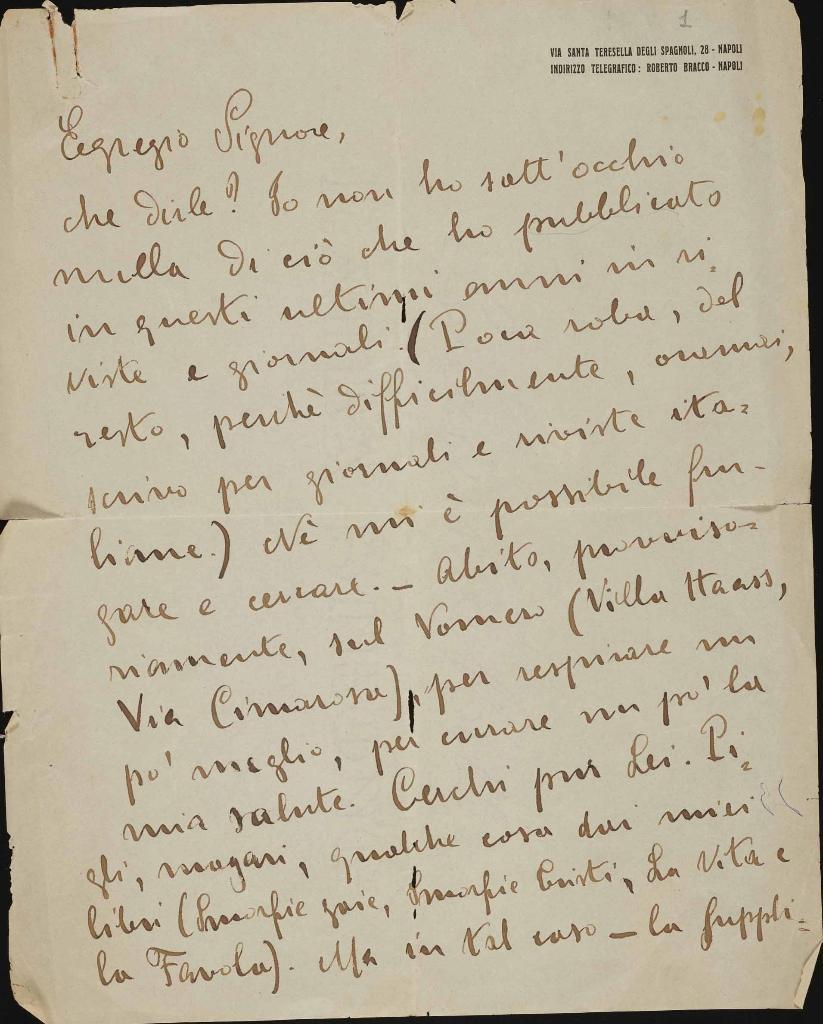 1
VIA SANTA TERESELLA DEGLI SPAGNOLI, 28 - NAPOLI
INDIRIZZO TELEGRAFICO: ROBERTO BRACCO - NAPOLI
Egregio Signore,
che dirle? Io non ho sott'occhio
nulla di ciò che ho pubblicato
in questi ultimi anni in ri=
viste e giornali. (Poca roba, del
resto, perchè difficilmente, oramai,
scrivo per giornali e riviste ita=
liane.) Nè mi è possibile fru-
gare e cercare. — Abito, provviso=
riamente, sul Vomero (Villa Haass,
Via Cimarosa), per respirare un
po' meglio, per curare un po' la
mia salute. Cerchi pur Lei. Pi=
gli, magari, qualche cosa dai miei
libri (Smorfie gaie, Smorfie tristi, La Vita e
la Favola). Ma in tal caso — la suppli=